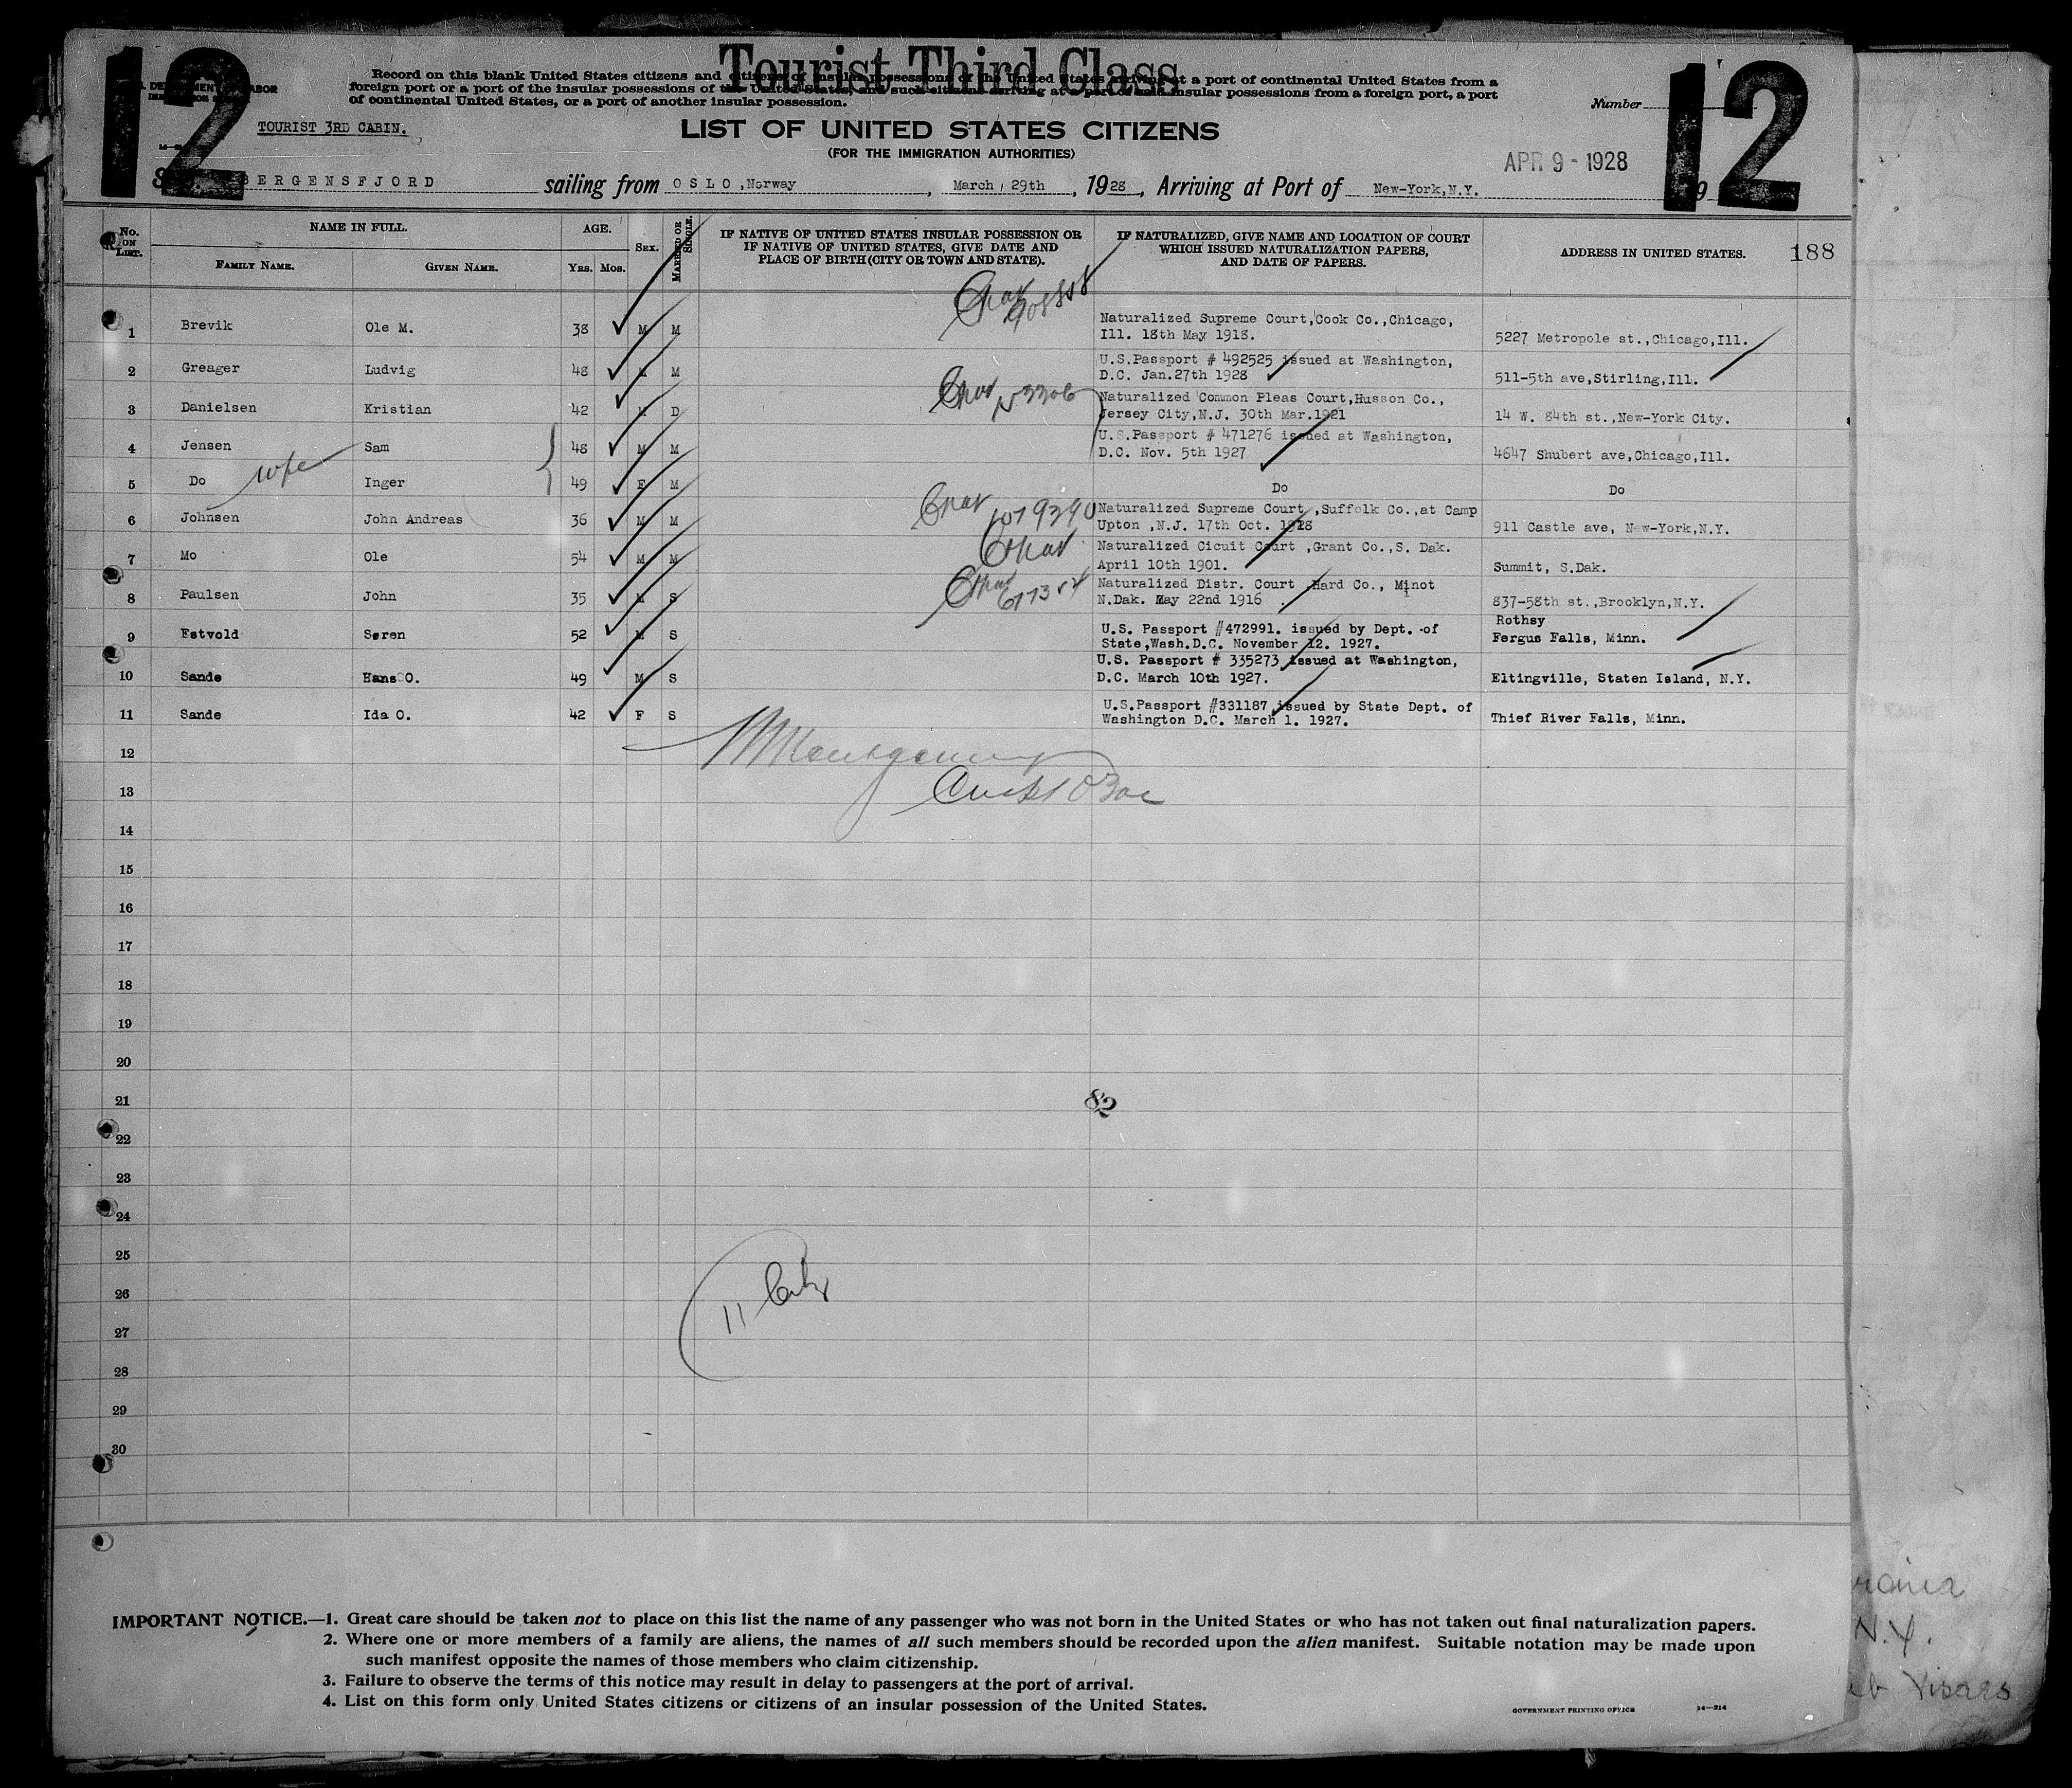 Tourist Third Class
12
12
Record on this blank United States citizens and citizens of insular possessions of the United States arriving at a port of continental United States from a
foreign port or a port of the insular possessions of the United States, and such citizens arriving at a port of said insular possessions from a foreign port, a port
of continental United States, or a port of another insular possession.
Number
TOURIST 3RD CABIN.
LIST OF UNITED STATES CITIZENS
(FOR THE IMMIGRATION AUTHORITIES)
APR 9 - 1928
BERGENSFJORD sailing from OSLO,Norway, March, 29th, 1928, Arriving at Port of New-York,N.Y.
No. ON LIST. NAME IN FULL. AGE. SEX. MARRIED OR SINGLE. IF NATIVE OF UNITED STATES INSULAR POSSESSION OR IF NATIVE OF UNITED STATES, GIVE DATE AND PLACE OF BIRTH (CITY OR TOWN AND STATE). IF NATURALIZED, GIVE NAME AND LOCATION OF COURT WHICH ISSUED NATURALIZATION PAPERS, AND DATE OF PAPERS. ADDRESS IN UNITED STATES. 188
FAMILY NAME. GIVEN NAME. YRS. MOS.
1 Brevik Ole M. 38 M M Naturalized Supreme Court,Cook Co.,Chicago,
Ill. 18th May 1918. 5227 Metropole st.,Chicago,Ill.
2 Greager Ludvig 48 M M U.S.Passport # 492525 issued at Washington,
D.C. Jan.27th 1928 511-5th ave,Stirling,Ill.
3 Danielsen Kristian 42 M D Naturalized Common Pleas Court,Husson Co.,
Jersey City,N.J. 30th Mar.1921 14 W. 84th st.,New-York City.
4 Jensen Sam 48 M M U.S.Passport # 471276 issued at Washington,
D.C. Nov. 5th 1927 4647 Shubert ave,Chicago,Ill.
5 Do wife Inger 49 F M Do Do
6 Johnsen John Andreas 36 M M Naturalized Supreme Court ,Suffolk Co.,at Camp
Upton ,N.J. 17th Oct. 1918 911 Castle ave, New-York,N.Y.
7 Mo Ole 54 M M Naturalized Cicuit Court ,Grant Co.,S. Dak.
April 10th 1901. Summit, S.Dak.
8 Paulsen John 35 M S Naturalized Distr. Court ,Hard Co., Minot
N.Dak. May 22nd 1916 837-58th st.,Brooklyn,N.Y.
9 Estvold Søren 52 M S U.S. Passport #472991. issued by Dept. of
State,Wash.D.C. November 12. 1927. Rothsy
Fergus Falls, Minn.
10 Sande Hans O. 49 M S U.S. Passport # 335273 issued at Washington,
D.C. March 10th 1927. Eltingville, Staten Island, N.Y.
11 Sande Ida O. 42 F S U.S.Passport #331187 issued by State Dept. of
Washington D.C. March 1. 1927. Thief River Falls, Minn.
12
Montgomery
13
14
15
16
17
18
19
20
21
82
22
23
24
25
26
11
27
28
29
30
IMPORTANT NOTICE.—1. Great care should be taken not to place on this list the name of any passenger who was not born in the United States or who has not taken out final naturalization papers.
2. Where one or more members of a family are aliens, the names of all such members should be recorded upon the alien manifest. Suitable notation may be made upon
such manifest opposite the names of those members who claim citizenship.
3. Failure to observe the terms of this notice may result in delay to passengers at the port of arrival.
4. List on this form only United States citizens or citizens of an insular possession of the United States.
GOVERNMENT PRINTING OFFICE 14—214
N.Y.